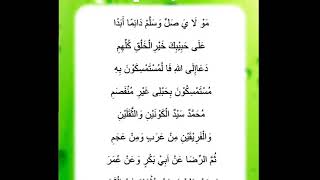 مَوْ لَا يَ صَلِّ وَسَلِّمْ دَائِمًا أَبَدًا
عَلَى حَبِيْبِكَ خَيْرِ الْخَلْقِ كُلِّهِمِ
دَعَاإِلَى اللهِ فَا لْمُسْتَمْسِكُوْنَ بِهِ
مُسْتَمْسِكُوْنَ بِحَبْلٍ غَيْرِ مُنْفَصِمِ
مُحَمَّدٌ سَيِّدُ الْكَوْنَيْنِ وَالثَّقَلَيْنِ
وَالْفَرِيْقَيْنِ مِنْ عَرَبٍ وَمِنْ عَجَمِ
ثُمَّ الرِّضَا عَنْ أَبِيْ بَكْرٍ وَعَنْ عُمَرَ